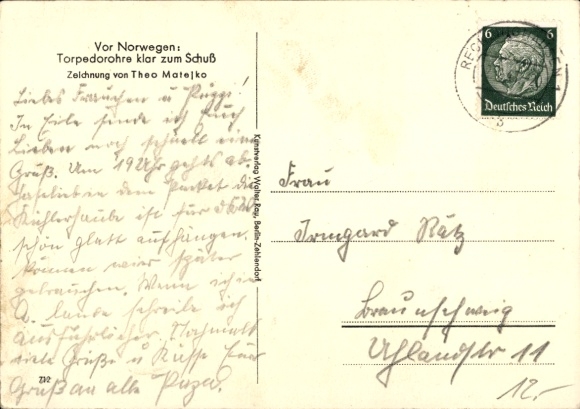 Vor Norwegen:
Torpedorohre klar zum Schuß
Zeichnung von Theo Matejko
Liebes Frauchen u Puzzi!
In Eile sende ich Euch
Lieben noch schnell einen
Gruß. Um 19 Uhr gehts ab.
dem Packet die
ist für
schön glatt aufhängen.
können wir später
gebrauchen. Wenn ich in
D. lande schreibe ich
ausführlicher. Nochmals
viele Grüße u Küsse Euer
Gruß an alle Papa.
Z12
Kunstverlag Walter Ray, Berlin-Zehlendorf
6 6
Deutsches Reich
b
Frau
Irmgard Rätz
Braunschweig
Uhlandstr 11
12.-